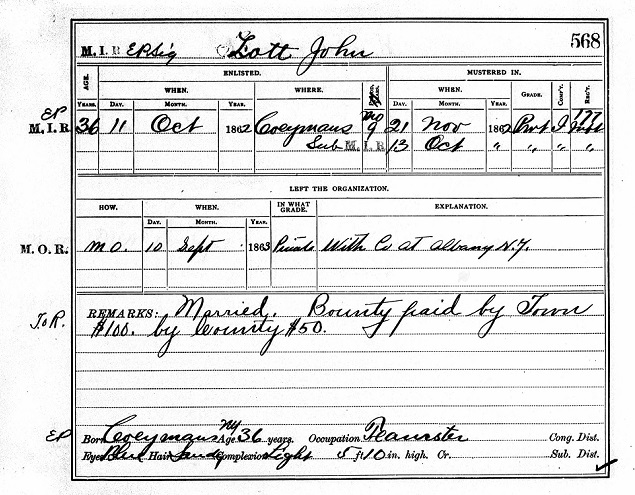 568
M. I. R. EP Sig Lott John
ENLISTED. MUSTERED IN.
AGE. WHEN. WHERE. WHEN. GRADE. COMP'Y. REG'T.
YEARS. DAY. MONTH. YEAR. DAY. MONTH. YEAR.
EP
M. I. R. 36 11 Oct 1862 Coeymans 9 mo 21 Nov 1862 Pvt I 177 Inft
Sub M. I. R. 13 Oct " " " "
LEFT THE ORGANIZATION.
HOW. WHEN. IN WHAT GRADE. EXPLANATION.
DAY. MONTH. YEAR.
M. O. R. M O. 10 Sept 1863 Private With Co at Albany N.Y.
J.o R. REMARKS: Married. Bounty paid by Town
$100. by County $50.
EP Born Coeymans NY Age 36 years. Occupation Teamster Cong. Dist.
Eyes Blue Hair Sandy Complexion Light 5 ft 10 in. high. Cr. Sub. Dist.